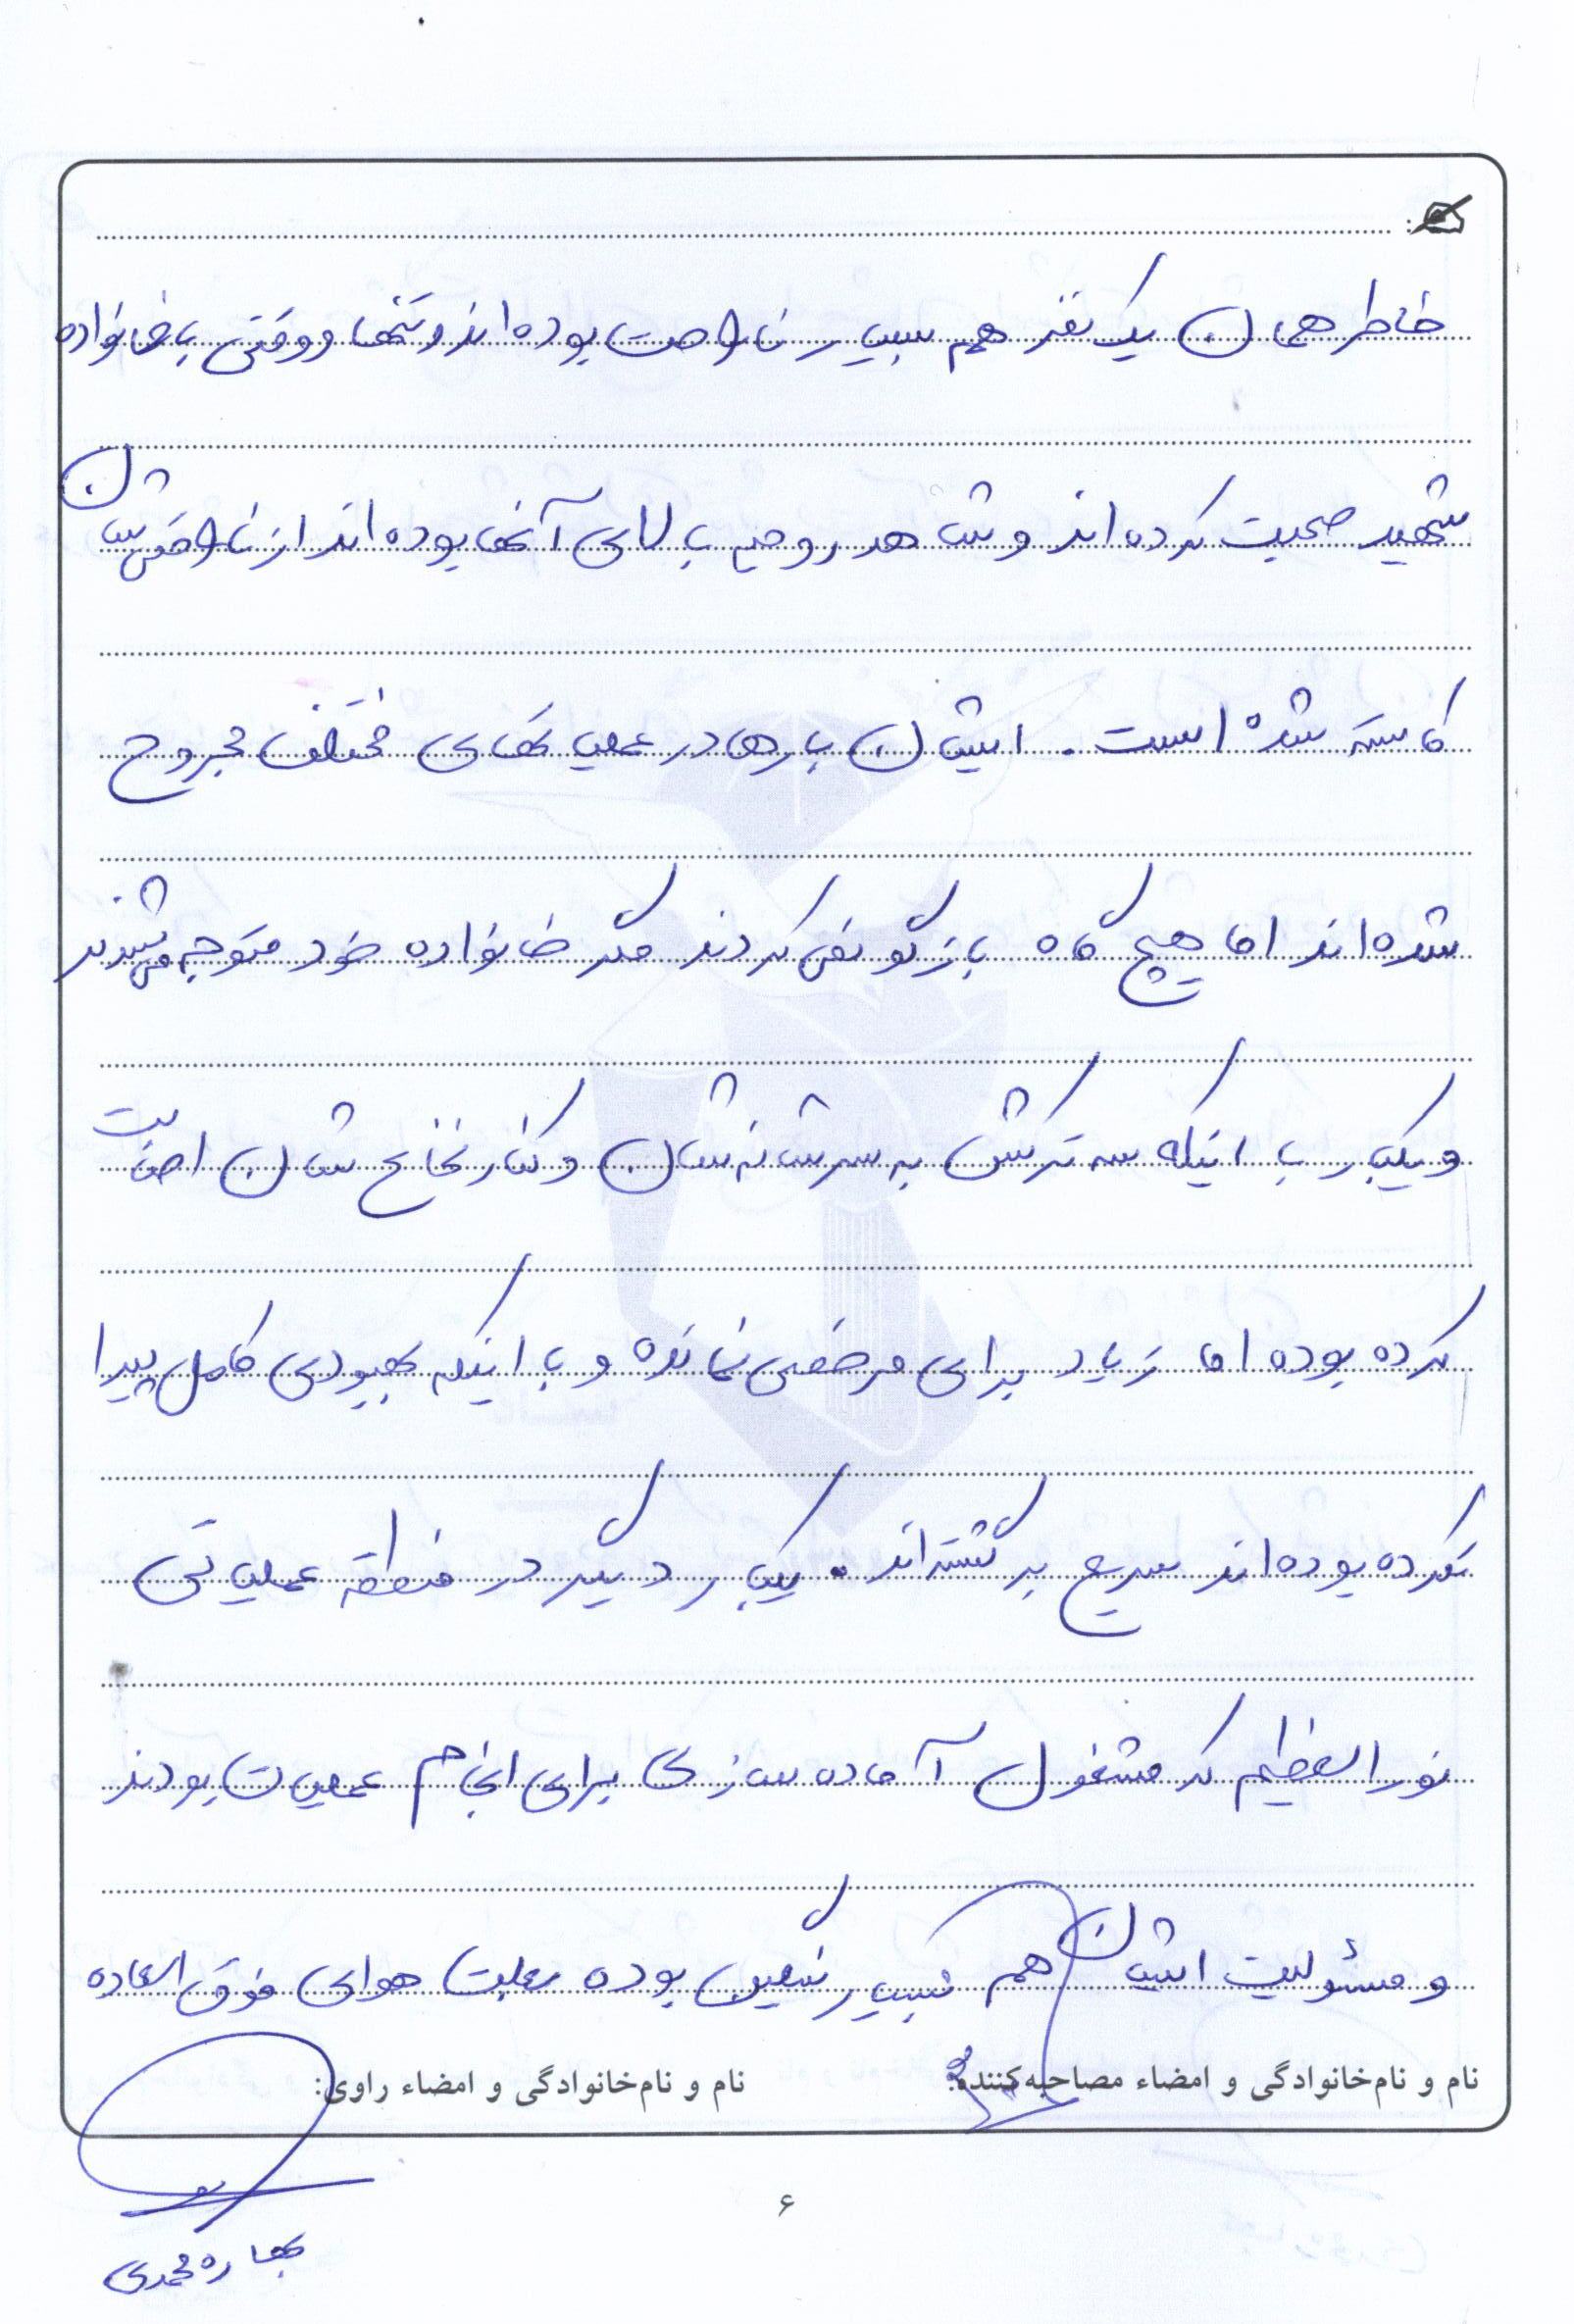 خاطر همان یک نفر هم بسیار ناراحت بوده اند و تنها و وقتی با خانواده
شهید صحبت کرده اند و شاهد روحیه بالای آنها بوده اند از ناراحتی شان
کاسته شده است . ایشان بارها در عملیاتهای مختلف مجروح
شده اند اما هیچ گاه بازگو نمی کردند مگر خانواده خود متوجه می شدند
و یکبار با اینکه سه ترکش به سرشانه شان و کنار نخاع شان اصابت
کرده بوده اما زیاد برای مرخصی نمانده و با اینکه بهبودی کامل پیدا
نکرده بوده اند سریع برگشته اند . یکبار دیگر در منطقه عملیاتی
نورالعظیم که مشغول آماده سازی برای انجام عملیات بودند
و مسئولیت ایشان هم بسیار سنگین بوده بعلت هوای فوق العاده
نام و نام‌خانوادگی و امضاء مصاحبه‌کننده:
نام و نام‌خانوادگی و امضاء راوی:
بهاره محمدی
۶